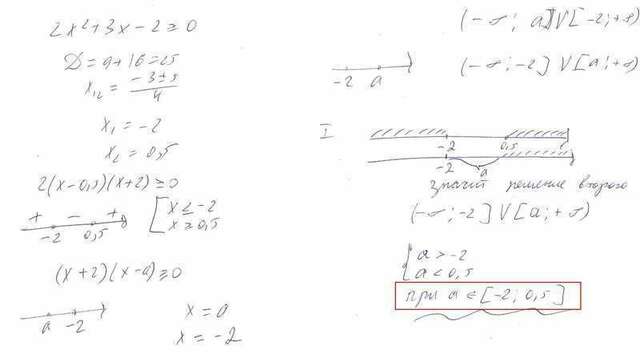 2x²+3x-2≥0
D=9+16=25
x₁₂ = (-3±5)/4
x₁ = -2
x₂ = 0,5
2(x-0,5)(x+2)≥0
+ - +
-2 0,5
[x≤-2
x≥0,5
(x+2)(x-a)≥0
a -2
x=a
x=-2
(-∞; a] V [-2;+∞)
-2 a
(-∞;-2] V [a;+∞)
I
-2 0,5
-2 a
значит решение второго
(-∞;-2] V [a;+∞)
{a>-2
a<0,5
при a∈[-2; 0,5]